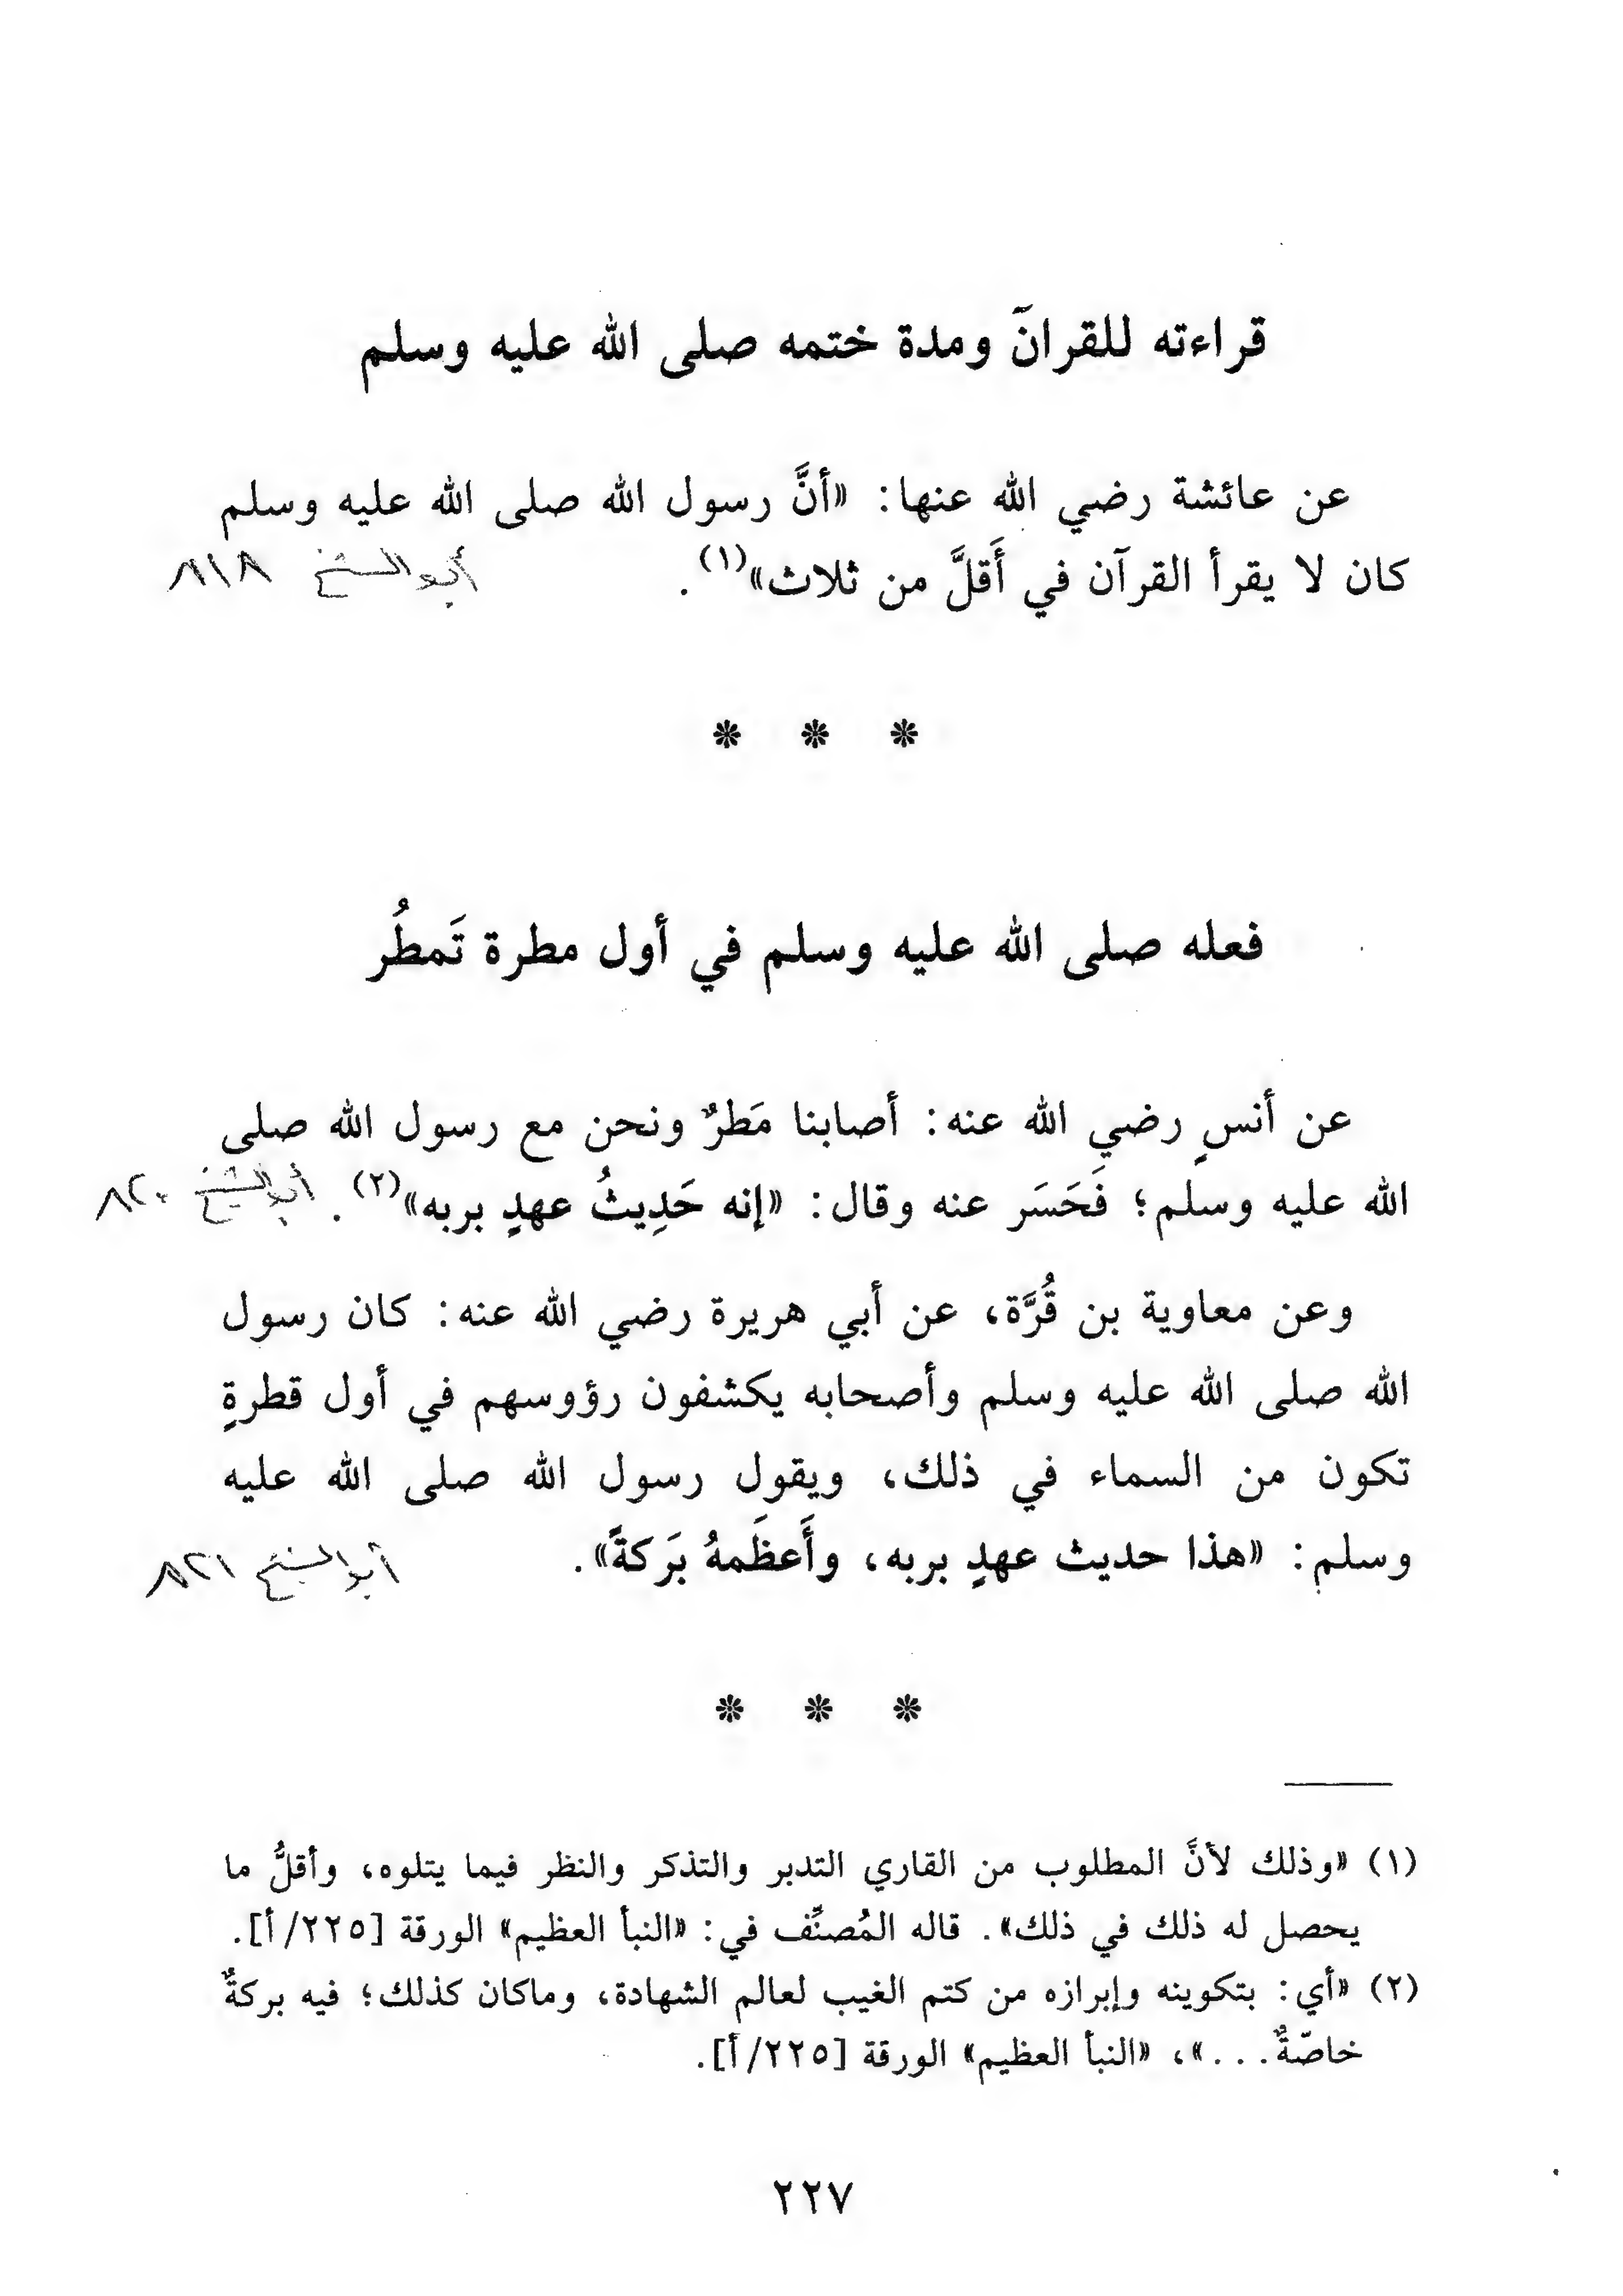 قراءته للقرانَ ومدة ختمه صلى الله عليه وسلم
عن عائشة رضي الله عنها: «أنَّ رسول الله صلى الله عليه وسلم
كان لا يقرأ القرآن في أَقلَّ من ثلاث»(١). أبو الشيخ ٨١٨
* * *
فعله صلى الله عليه وسلم في أول مطرة تَمطُر
عن أنسٍ رضي الله عنه: أصابنا مَطرٌ ونحن مع رسول الله صلى
الله عليه وسلم؛ فَحَسَر عنه وقال: «إنه حَدِيثُ عهدٍ بربه»(٢). أبو الشيخ ٨٢٠
وعن معاوية بن قُرَّة، عن أبي هريرة رضي الله عنه: كان رسول
الله صلى الله عليه وسلم وأصحابه يكشفون رؤوسهم في أول قطرةٍ
تكون من السماء في ذلك، ويقول رسول الله صلى الله عليه
وسلم: «هذا حديث عهدٍ بربه، وأَعظَمهُ بَركةً». أبو الشيخ ٨٢١
* * *
(١) «وذلك لأنَّ المطلوب من القاري التدبر والتذكر والنظر فيما يتلوه، وأقلُّ ما
يحصل له ذلك في ذلك». قاله المُصنِّف في: «النبأ العظيم» الورقة [٢٢٥/أ].
(٢) «أي: بتكوينه وإبرازه من كتم الغيب لعالم الشهادة، وماكان كذلك؛ فيه بركةٌ
خاصّةٌ...»، «النبأ العظيم» الورقة [٢٢٥/أ].
٢٢٧